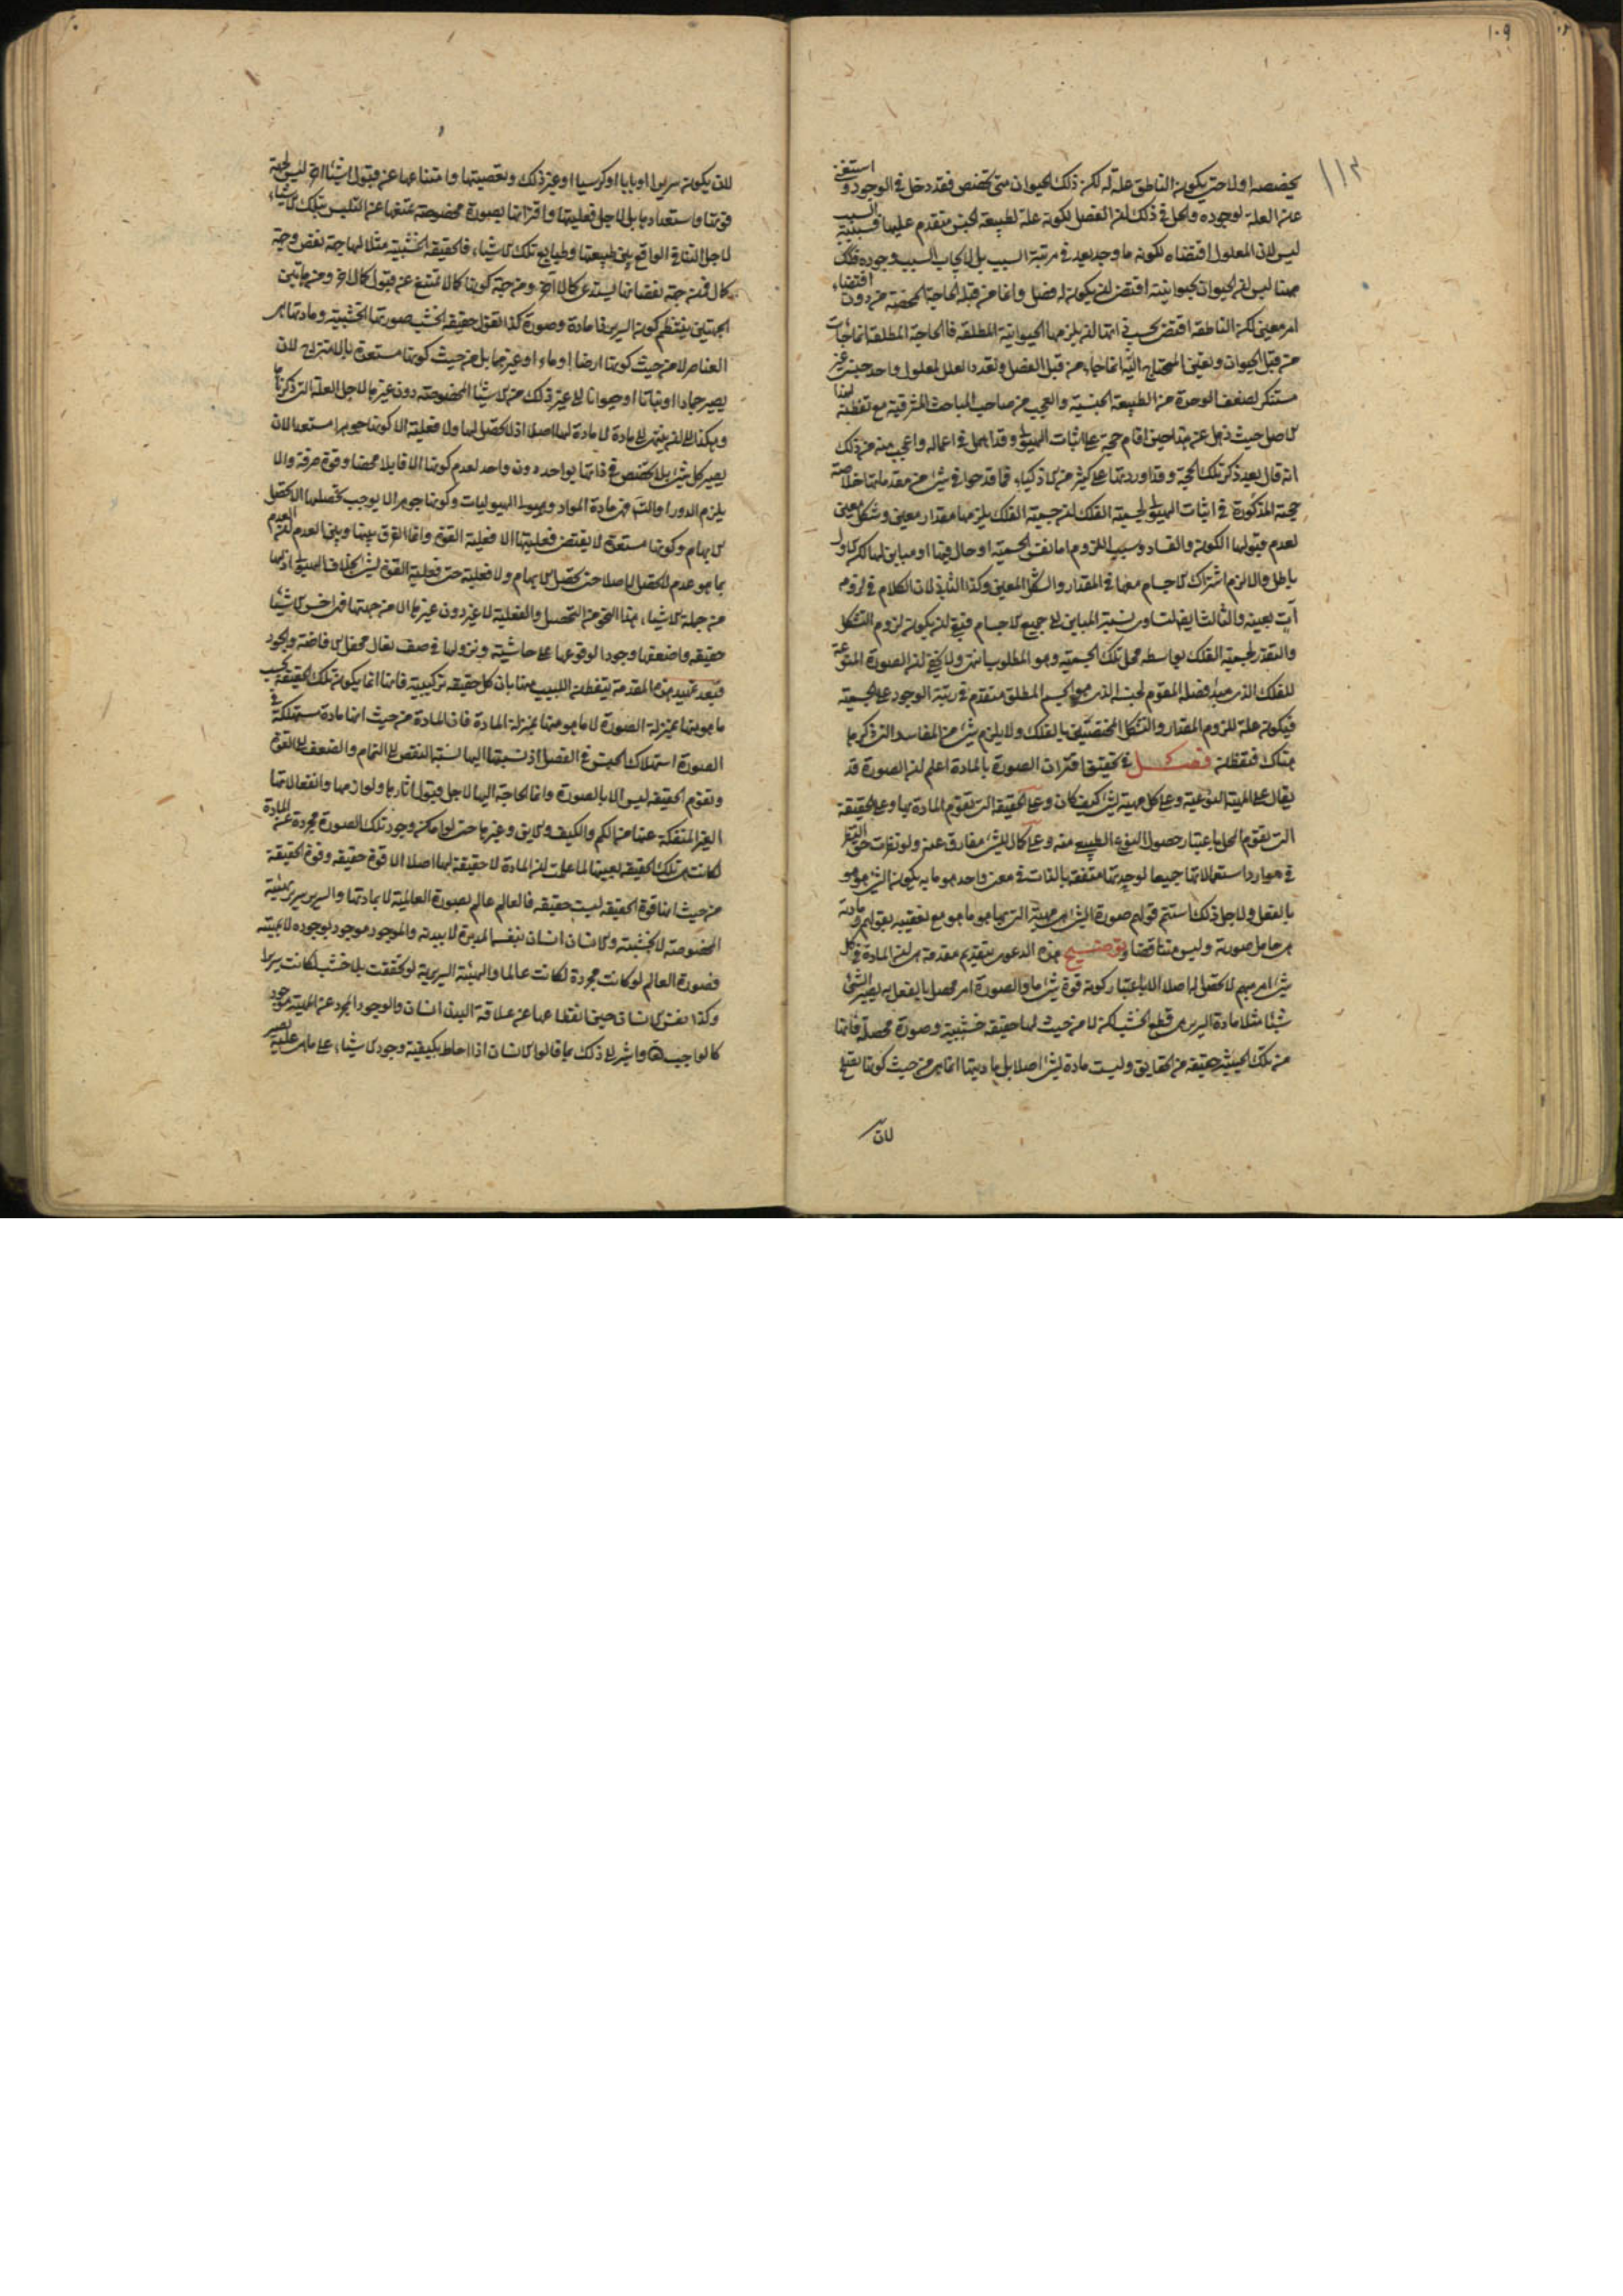 ١٠٩
١١٣
يخصصه اولا حتى يكون الناطق علة له لكن ذلك الحيوان متى تخصص فقد دخل فى الوجود و استغنى
عن العلة لوجوده والحل فى ذلك ان الفصل لكونه علة لطبيعة الجنس متقدم عليها فسببية السبب
ليس لان المعلول اقتضاه لكونه ما وجد بعد فى مرتبة السبب بل لايجاب السبب وجوده فلك
ههنا ليس ان الحيوان بحيوانيته اقتضى ان يكون له فصل وانما من قبله الحاجة المحضة من دون اقتضاء
امر معين لكن الناطقة اقتضى بحسب ذاتها ان يلزمها الحيوانية المطلقة فالحاجة المطلقة انما جاءت
من قبل الحيوان وتعين المحتاج اليه انما جاء من قبل الفصل وتعدد العلل لمعلول واحد جنسى غير
مستنكر لضعف الوحدة فى الطبيعة الجنسية والعجب من صاحب المباحث المشرقية مع تفطنه لهذا
الاصل حيث ذهل عنه هذا حين اقام حجة على اثبات الهيولى وقد اهمل فى اعماله واعجب منه من ذلك
انه قال بعد ذكر تلك الحجة وقد اوردتها على كثير من الاذكياء فما قدحوا فى شىء من مقدماتها خلاصة
حجته المذكورة فى اثبات الهيولى لجسمية الفلك ان جسمية الفلك يلزمها مقدار معين وشكل معين
لعدم قبولها الكون والفساد وسبب اللزوم اما نفس الجسمية او حال فيها او مباين لها لكن الاول
باطل والا لزم اشتراك الاجسام معها فى المقدار والشكل المعين وكذا الثانى لان الكلام فى لزومه
آت بعينه والثالث ايضا لتساوى نسبة المباين الى جميع الاجسام فبقى ان يكون لزوم الشكل
والمقدار لجسمية الفلك بواسطة محل تلك الجسمية وهو المطلوب انتهى ولا يخفى ان الصورة المنوعة
للفلك الذى مبدء فصله المقوم لجنسه الذى هو الجسم المطلق متقدم فى رتبة الوجود على الجسمية
فيكون علة للزوم المقدار والشكل المختصتين بالفلك ولا يلزم شىء من المفاسد التى ذكرها
هناك فتفطن فصل فى تحقيق اقتران الصورة بالمادة اعلم ان الصورة قد
يقال على الماهية النوعية وعلى كل ماهية لشىء كيف كان وعلى الحقيقة التى يقوم المادة بها وعلى الحقيقة
التى يقوم المحل باعتبار حصول النوع الطبيعى منه وعلى كمال للشىء مفارق عنه ولو نظرت حق النظر
فى موارد استعمالاتها جميعا لوجدتها متفقة بالذات فى معنى واحد هو ما به يكون الشىء هو هو
بالفعل ولاجل ذلك استتم قولهم صورة الشىء هى ماهيته التى بها هو ما هو مع تعقيبه بقولهم ومادته
هى حامل صورته وليس متناقضا وتوضيح هذه الدعوى بتقديم مقدمة هى ان المادة فى كل
شىء امر مبهم لا تحصل لها اصلا الا باعتبار كونه قوة شىء ما والصورة امر محصل بالفعل به يصير الشىء
شيئا مثلا مادة السرير هى قطع الخشب لكن لا من حيث لها حقيقة خشبية وصورة محصلة فانها
من تلك الحيثية حقيقة من الحقايق وليست مادة لشىء اصلا بل ماديتها انما هى من حيث كونها تصلح
لان
لان يكون سريرا او بابا او كرسيا او غير ذلك وتعصيتها وامتناعها عن قبول اشياء اخر ليس لجهة
قوتها واستعدادها بل لاجل فعليتها واقترانها بصورة مخصوصة تمنعها عن التلبس بتلك الاشياء
لاجل التنافى الواقع بين طبيعتها وطبايع تلك الاشياء فالحقيقة الخشبية مثلا لها جهة نقص وجهة
كمال فمن جهة نقصانها يستدعى كمالا آخر ومن جهة كونها كمالا تمتنع عن قبول كمال آخر ومن هاتين
الجهتين ينتظم كون السرير ذا مادة وصورة كذا نقول حقيقة الخشب صورتها الخشبية ومادتها هى
العناصر لا من حيث كونها ارضا او ماء او غيرهما بل من حيث كونها مستعدة بالامتزاج لان
يصير جمادا او نباتا او حيوانا الى غير ذلك من الاشياء المخصوصة دون غيرها لاجل العلة التى ذكرناها
وهكذا الى ان ينتهى الى مادة لا مادة لها اصلا اذ لا تحصل لها ولا فعلية الا كونها جوهرا مستعدا لان
يصير كل شىء بلا تخصص فى ذاتها بواحد دون واحد لعدم كونها الا قابلا محضا وقوة صرفة والا
يلزم الدور او التس فهى مادة المواد وهيولى الهيوليات وكونها جوهرا لا يوجب تحصلها الا تحصل
الابهام وكونها مستعدة لا يقتضى فعليتها الا فعلية القوة وانما الفرق بينها وبين العدم ان العدم
بما هو عدم لا تحصل له اصلا حتى تحصل الابهام ولا فعلية حتى فعلية القوة لشىء بخلاف الهيولى اذ لها
من جملة الاشياء هذا النحو من التحصل والفعلية لا غير دون غيرها الا من جهتها فهى اخس الاشياء
حقيقة واضعفها وجودا لوقوعها على حاشيته ونزولها فى صف نعال محفل الافاضة والجود
فبعد تمهيد هذه المقدمة يتفطن اللبيب منها بان كل حقيقة تركيبية فانها انما يكون تلك الحقيقة بحسب
ما هو منها بمنزلة الصورة لا ما هو منها بمنزلة المادة فان المادة من حيث انها مادة مستهلكة فى
الصورة استهلاك الجنس فى الفصل اذ نسبتها اليها نسبة النقص الى التمام والضعف الى القوة
وتقوم الحقيقة ليس الا بالصورة وانما الحاجة اليها لاجل قبول اثارها ولوازمها وانفعالاتها
الغير المنفكة عنها من الكم والكيف والاين وغيرها حتى لو امكن وجود تلك الصورة مجردة عن المادة
لكانت هى تلك الحقيقة بعينها لما علمت ان المادة لا حقيقة لها اصلا الا قوة حقيقة وقوة الحقيقة
من حيث انها قوة الحقيقة ليست حقيقة فالعالم عالم بصورة العالمية لا بمادتها والسرير سرير بهيئته
المخصوصة لا بخشبيته والانسان انسان بنفسه المدبرة لا ببدنه والموجود موجود بوجوده لا بماهيته
فصورة العالم لو كانت مجردة لكانت عالما والهيئة السريرية لو تحققت بلا خشب لكانت سريرا
وكذا نفس الانسان حين انقطاعها عن علاقة البدن انسان والوجود المجرد عن الماهية موجود
كالواجب تعالى واشير الى ذلك بما قالوا الانسان اذا احاط بكيفية وجود الاشياء على ما هى عليه يصير